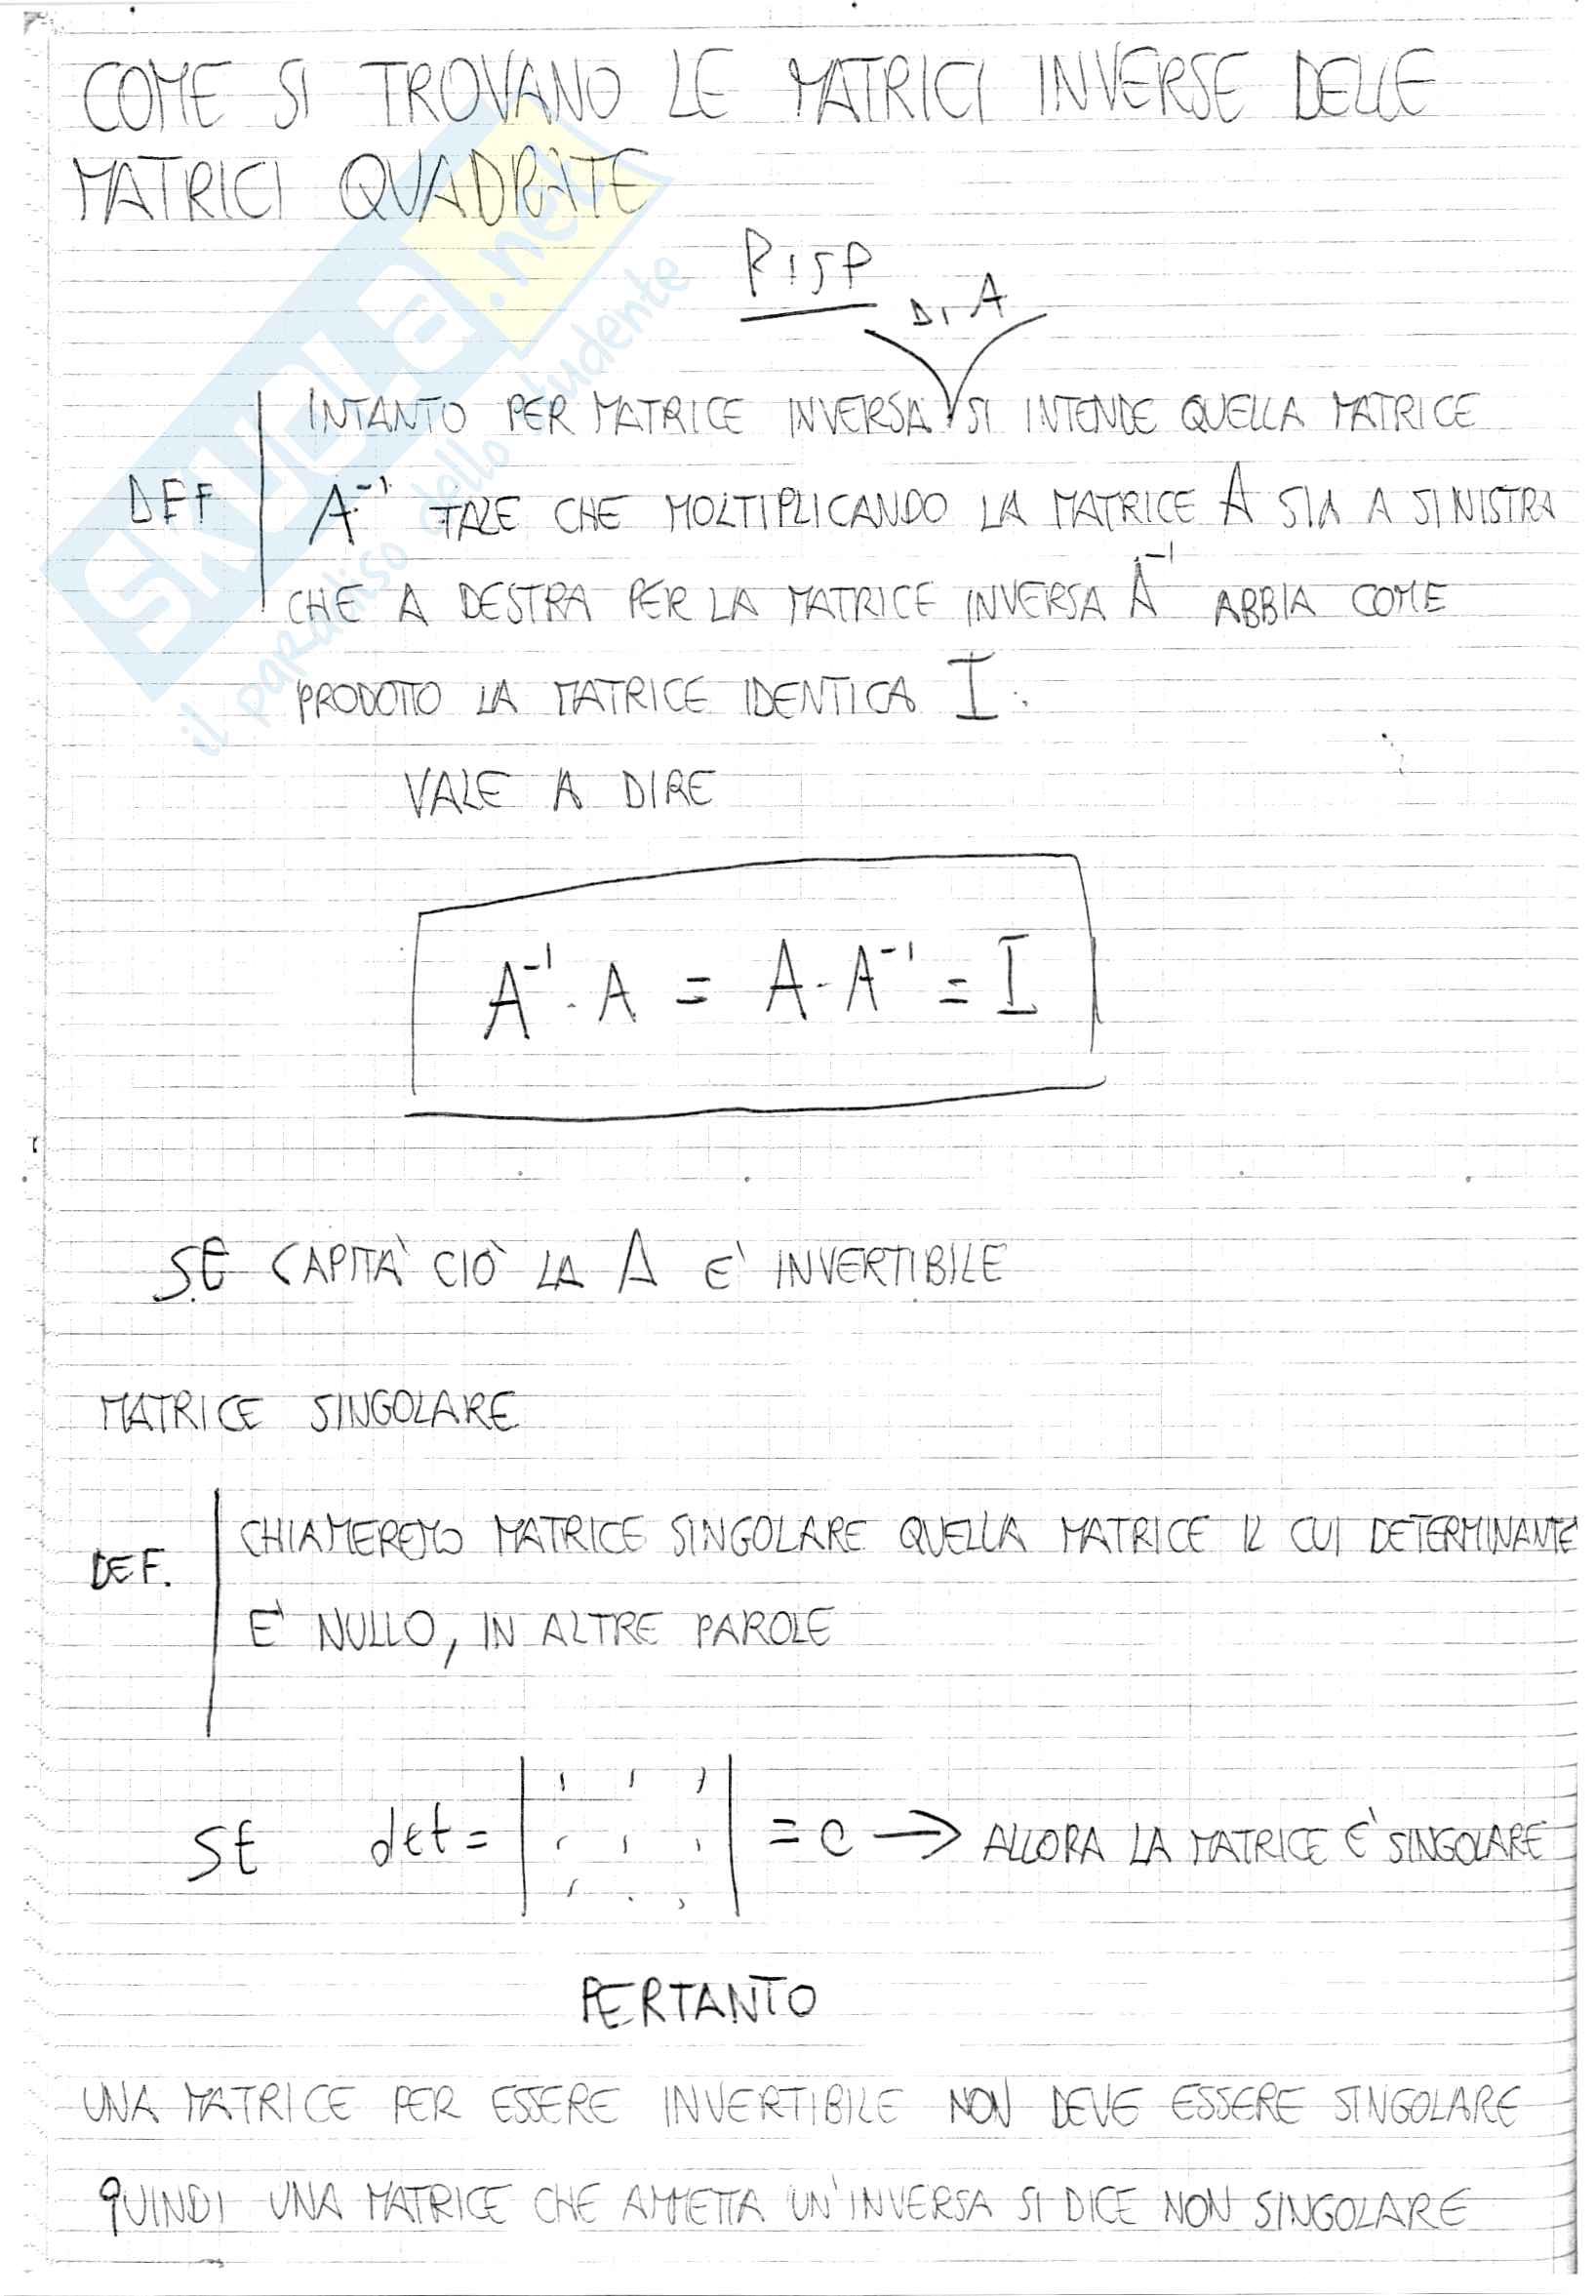 COME SI TROVANO LE MATRICI INVERSE DELLE
MATRICI QUADRATE
RISP
DI A
INTANTO PER MATRICE INVERSA SI INTENDE QUELLA MATRICE
DEF A⁻¹ TALE CHE MOLTIPLICANDO LA MATRICE A SIA A SINISTRA
CHE A DESTRA PER LA MATRICE INVERSA A⁻¹ ABBIA COME
PRODOTTO LA MATRICE IDENTICA I.
VALE A DIRE
A⁻¹ · A = A · A⁻¹ = I
SE CAPITA' CIÒ LA A E' INVERTIBILE
MATRICE SINGOLARE
CHIAMEREMO MATRICE SINGOLARE QUELLA MATRICE IL CUI DETERMINANTE
DEF.
E' NULLO, IN ALTRE PAROLE
SE det = | | = 0 → ALLORA LA MATRICE E' SINGOLARE
PERTANTO
UNA MATRICE PER ESSERE INVERTIBILE NON DEVE ESSERE SINGOLARE
QUINDI UNA MATRICE CHE AMMETTA UN'INVERSA SI DICE NON SINGOLARE
SKUOLA.net
il paradiso dello studente